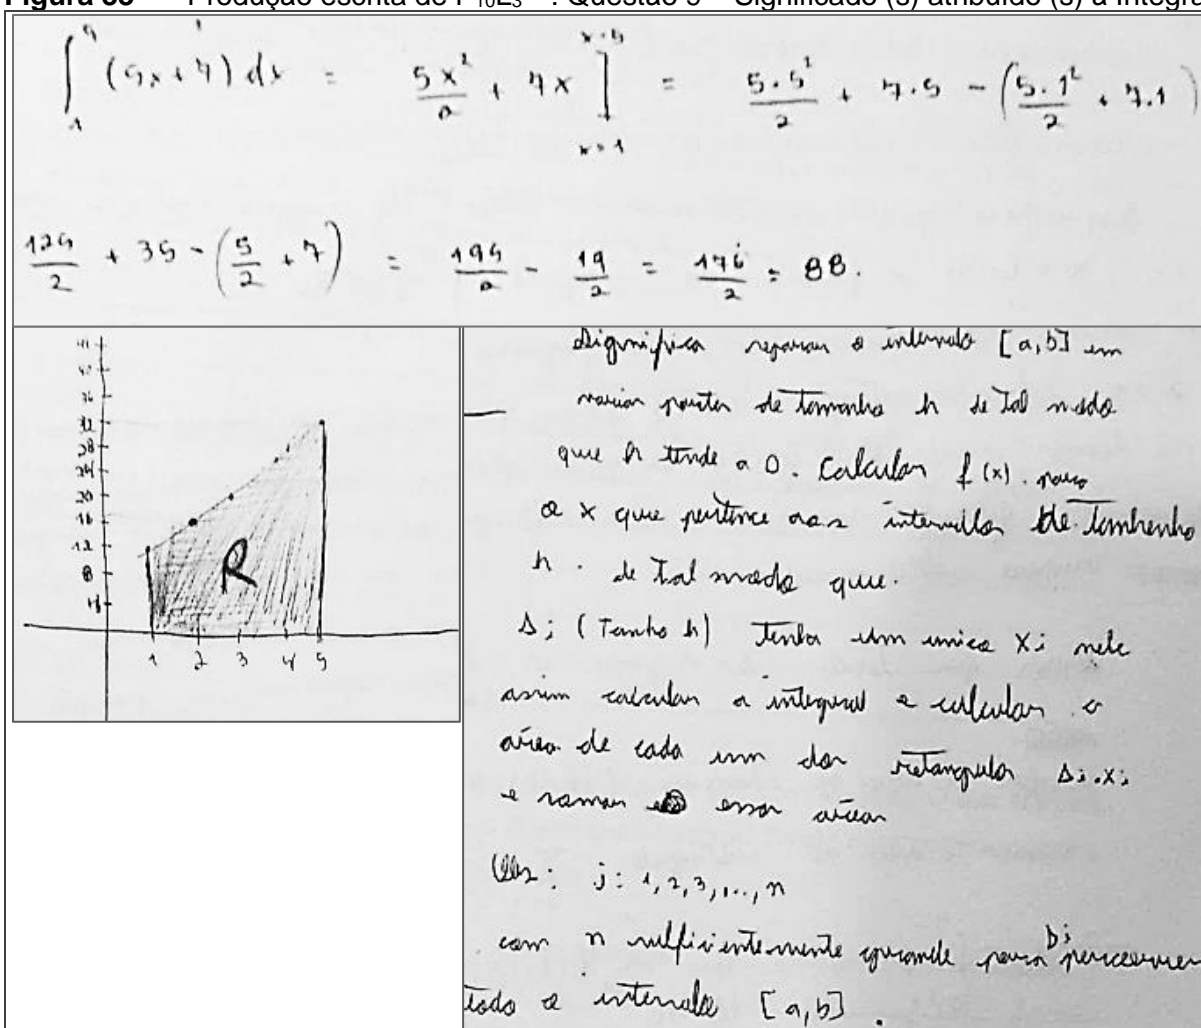 Figura 33 Produção escrita de P₁₀E₃ . Questão 5 – Significado (s) atribuído (s) à Integra
∫₁⁵ (5x+7) dx = 5x²/2 + 7x ]ₓ₌₁ˣ⁼⁵ = 5.5²/2 + 7.5 - (5.1²/2 + 7.1)
125/2 + 35 - (5/2 + 7) = 195/2 - 19/2 = 176/2 = 88.
32
28
24
20
16
12
8
4
R
1 2 3 4 5
Significa separar o intervalo [a,b] em
varias partes de tamanho h de tal modo
que h tende a 0. Calcular f(x). para
o x que pertence aos intervalos de tamhenho
h. de tal modo que.
Δj (Tamho h) tenha um unico xj nele
assim calcular a integral e calcular a
aŕea de cada um dos retangulos Δj.xj
e somar essas aŕeas
Obs: j: 1,2,3,..., n
com n suficientemente grande para Δj percorrer
todo o intervalo [a,b].